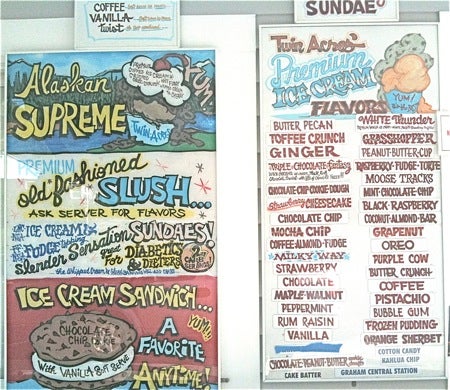 COFFEE
VANILLA
twist
Alaskan
SUPREME
YUM!
TWIN ACRES
PREMIUM
old fashioned
SLUSH...
ASK SERVER FOR FLAVORS
ICE CREAM &
FUDGE
SUNDAES!
Slender Sensation
good for
DIABETICS
& DIETERS
ICE CREAM SANDWICH...
YUM!
CHOCOLATE
CHIP COOKIE
WITH VANILLA SOFT SERVE
A
FAVORITE
ANYTIME!
SUNDAES
Twin Acres
Premium
ICE CREAM
FLAVORS
YUM!
BUTTER PECAN
TOFFEE CRUNCH
GINGER
TRIPLE-CHOCOLATE-fantasy
CHOCOLATE-CHIP-COOKIE-DOUGH
strawberry CHEESECAKE
CHOCOLATE CHIP
MOCHA CHIP
COFFEE-ALMOND-FUDGE
MILKY WAY
STRAWBERRY
CHOCOLATE
MAPLE-WALNUT
PEPPERMINT
RUM RAISIN
VANILLA
CHOCOLATE-PEANUT-BUTTER
CAKE BATTER
WHITE Thunder
GRASSHOPPER
PEANUT-BUTTER-CUP
RASPBERRY-FUDGE-TORTE
MOOSE TRACKS
MINT-CHOCOLATE-CHIP
BLACK-RASPBERRY
COCONUT-ALMOND-BAR
GRAPENUT
OREO
PURPLE COW
BUTTER CRUNCH
COFFEE
PISTACHIO
BUBBLE GUM
FROZEN PUDDING
ORANGE SHERBET
COTTON CANDY
KAHLUA CHIP
GRAHAM CENTRAL STATION